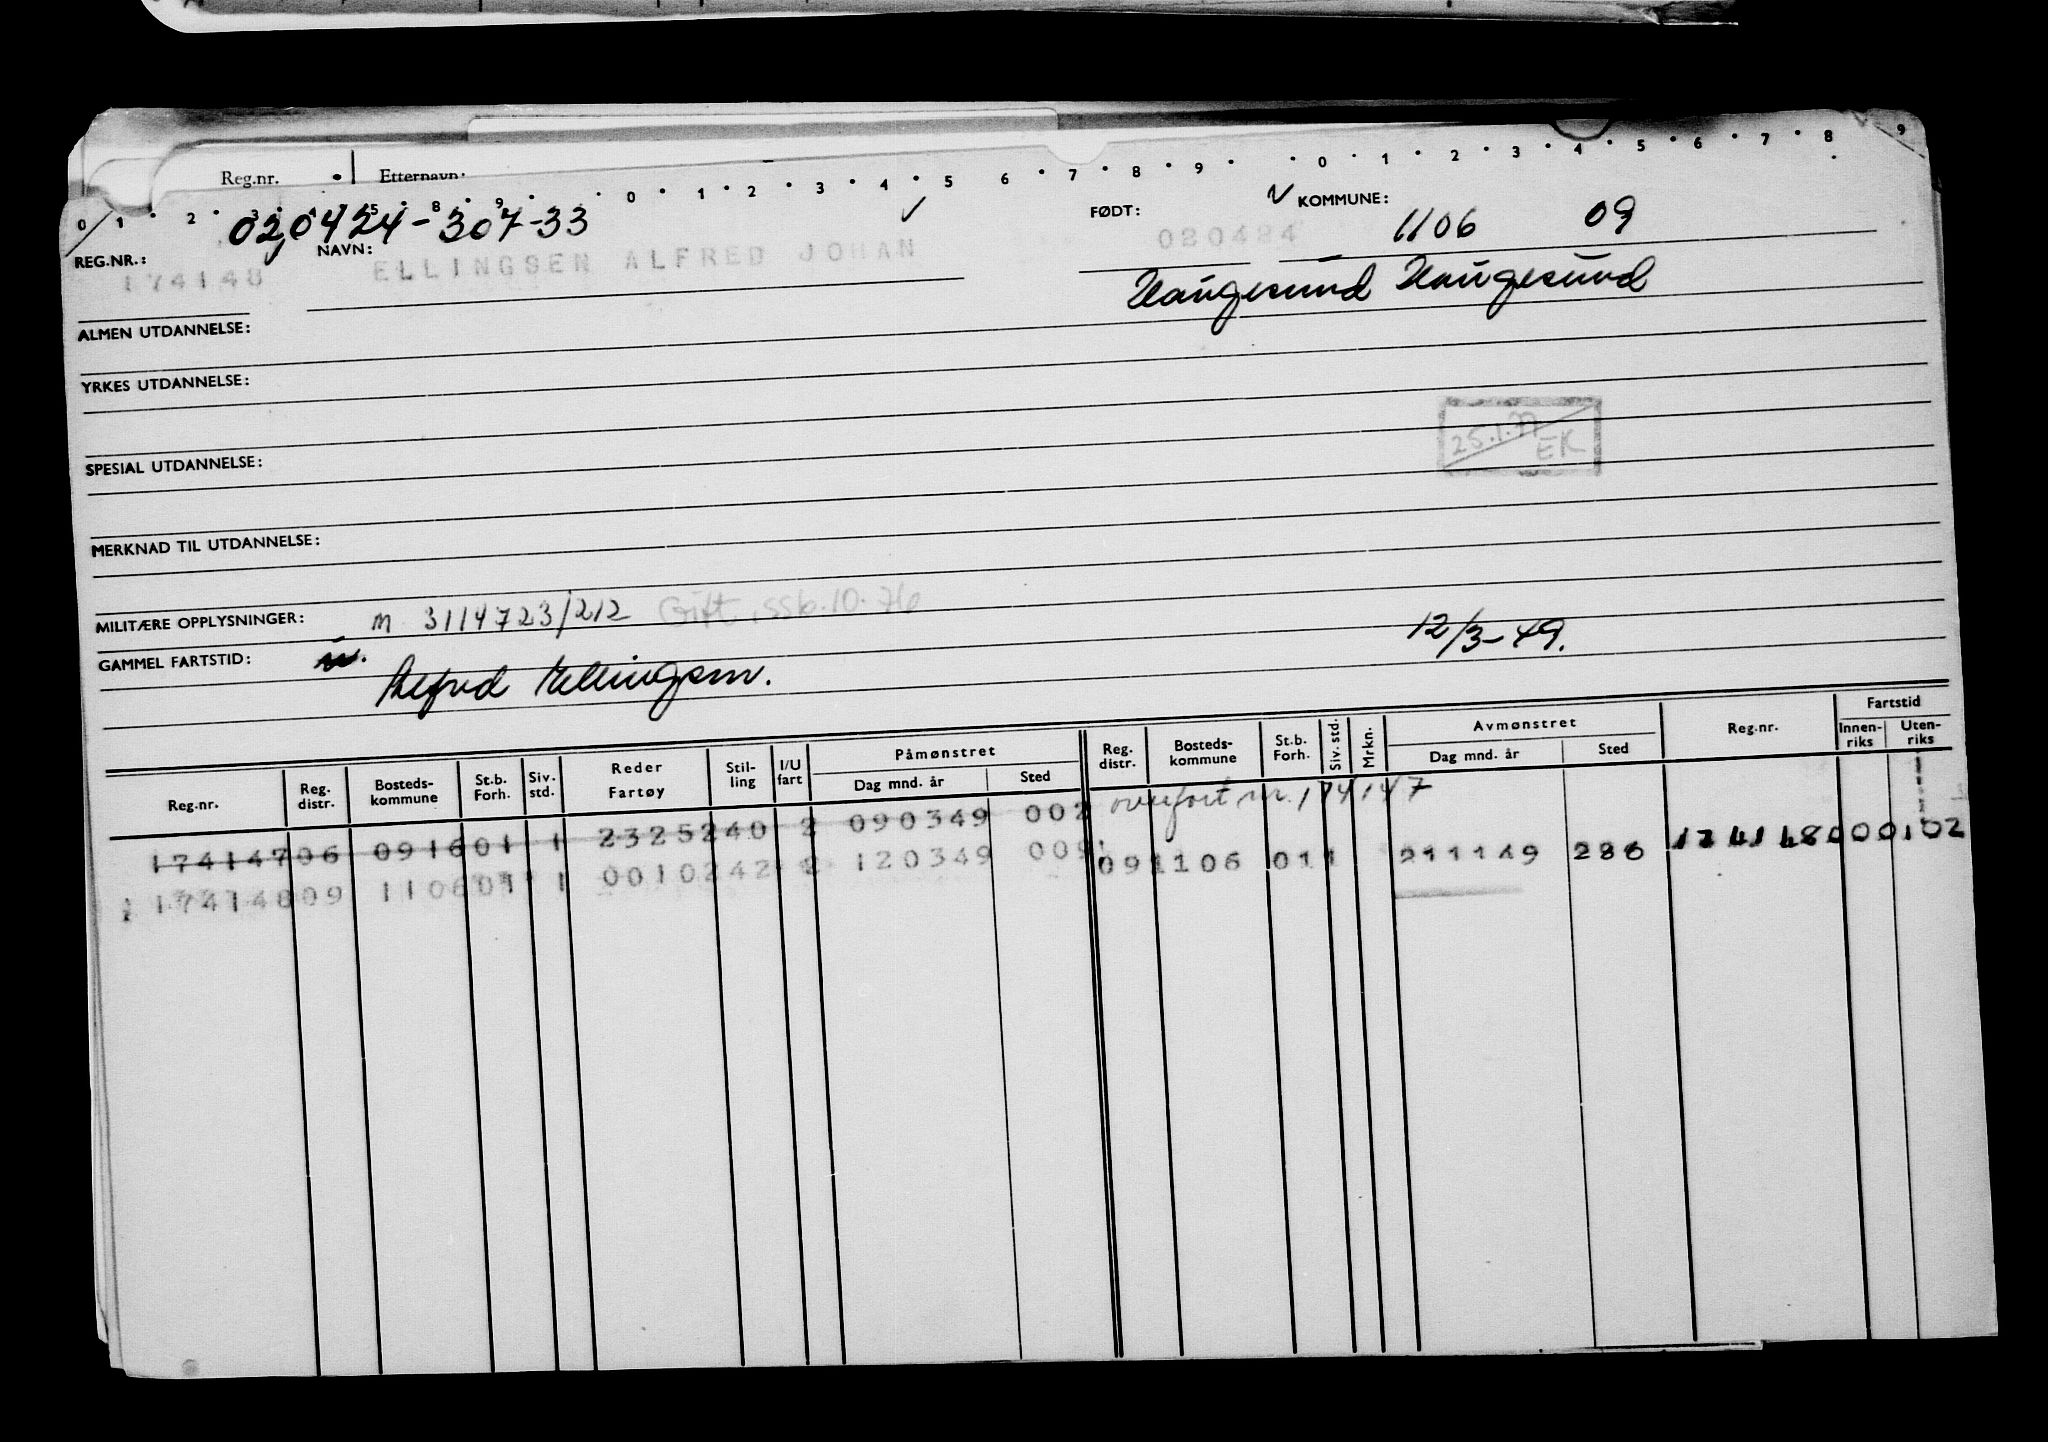 Reg.nr. Etternavn:
0 1 2 3 4 5 8 9 0 1 2 3 4 5 6 7 8 9 0 1 2 3 4 5 6 7 8 9
020424-307-33 FØDT: KOMMUNE: 1106 09
REG.NR.: 174148 NAVN: ELLINGSEN ALFRED JOHAN 020424
Haugesund Haugesund
ALMEN UTDANNELSE:
YRKES UTDANNELSE:
25.1.77 EK
SPESIAL UTDANNELSE:
MERKNAD TIL UTDANNELSE:
MILITÆRE OPPLYSNINGER: M 3114723/212 Gift, ssb.10.76
GAMMEL FARTSTID: 12/3-49.
Alfred Ellingsen.
Reg.nr. Reg. distr. Bosteds-kommune St.b. Forh. Siv. std. Reder Fartøy Stil-ling I/U fart Påmønstret Dag mnd. år Sted Reg. distr. Bosteds-kommune St.b. Forh. Siv. std. Mrkn. Avmønstret Dag mnd. år Sted Reg.nr. Fartstid Innen-riks Uten-riks
174147 06 0916 01 1 2325240 2 090349 002 overført nr. 174147
174148 09 1106 01 1 0010242 2 120349 009 09 1106 01 1 211149 286 174148 000102